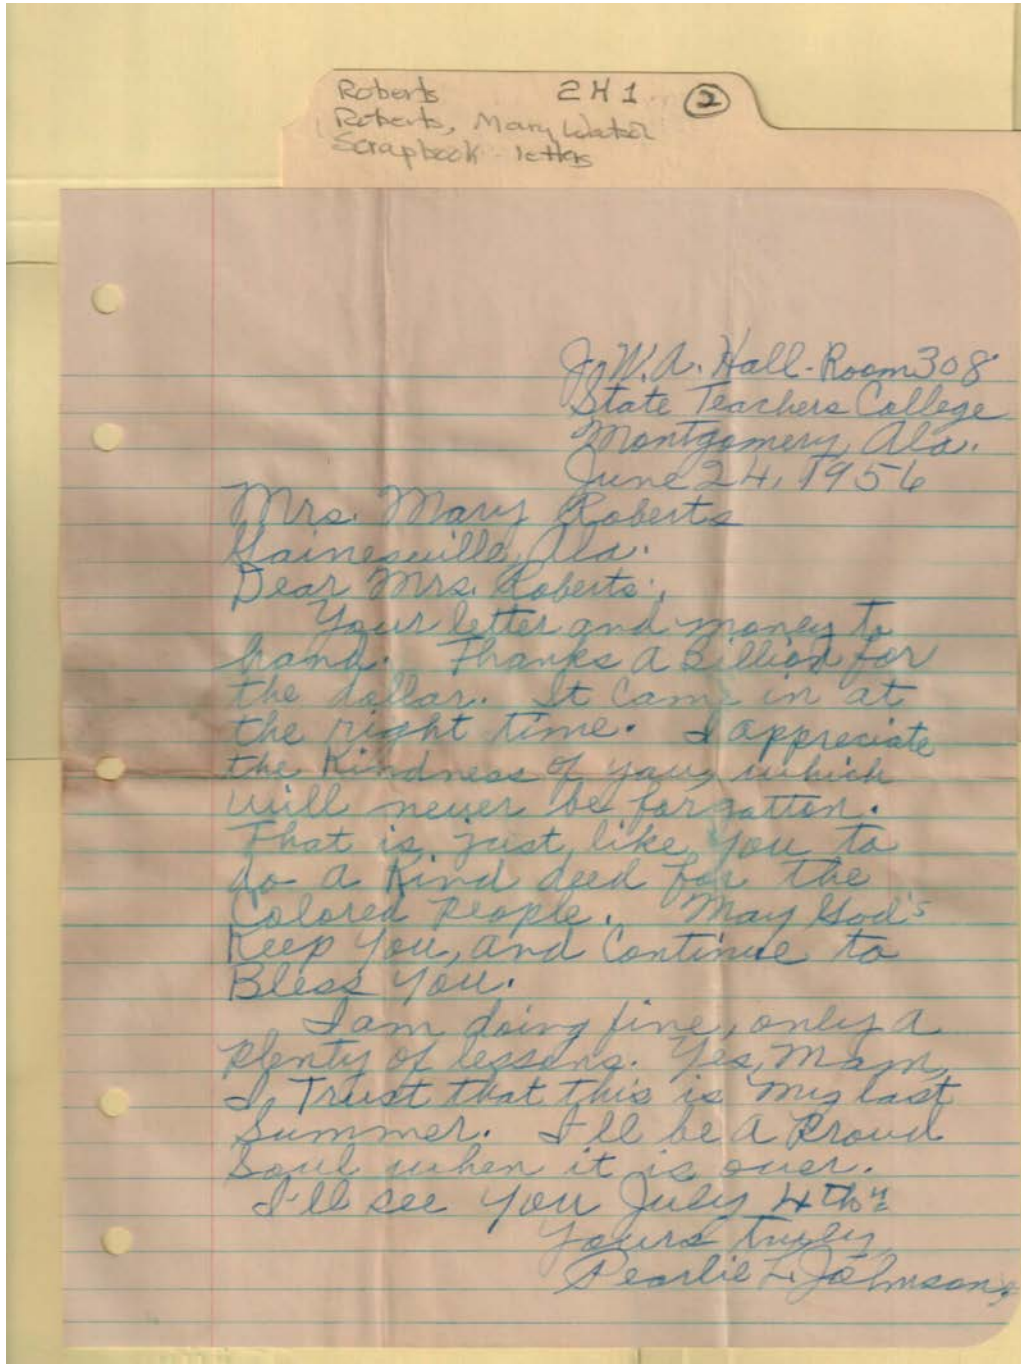 Roberts 2H1 2
Roberts, Mary
Scrapbook - letters
W.A. Hall - Room 308
State Teachers College
Montgomery, Ala.
June 24, 1956
Mrs. Mary Roberts
Gainesville, Ala.
Dear Mrs. Roberts:,
Your letter and money to
hand. Thanks a Billion for
the dollar. It Came in at
the right time. I appreciate
the Kindness of you, which
will never be forgotton.
That is just like you to
do a Kind deed for the
Colored People. May God's
Keep You, and Continue to
Bless You.
I am doing fine, only a
Plenty of lessons. Yes, Mam,
I Trust that this is my last
Summer. I'll be a Proud
Soul when it is over.
I'll see you July 4th"
Yours truly,
Pearlie L. Johnson,